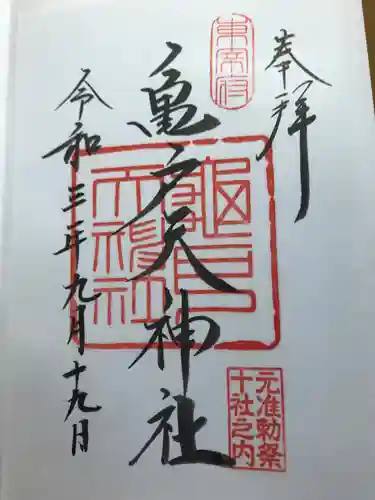 奉拝
東帝宮
亀戸天神社
龜戸天神社
元准勅祭
十社之内
令和三年九月十九日